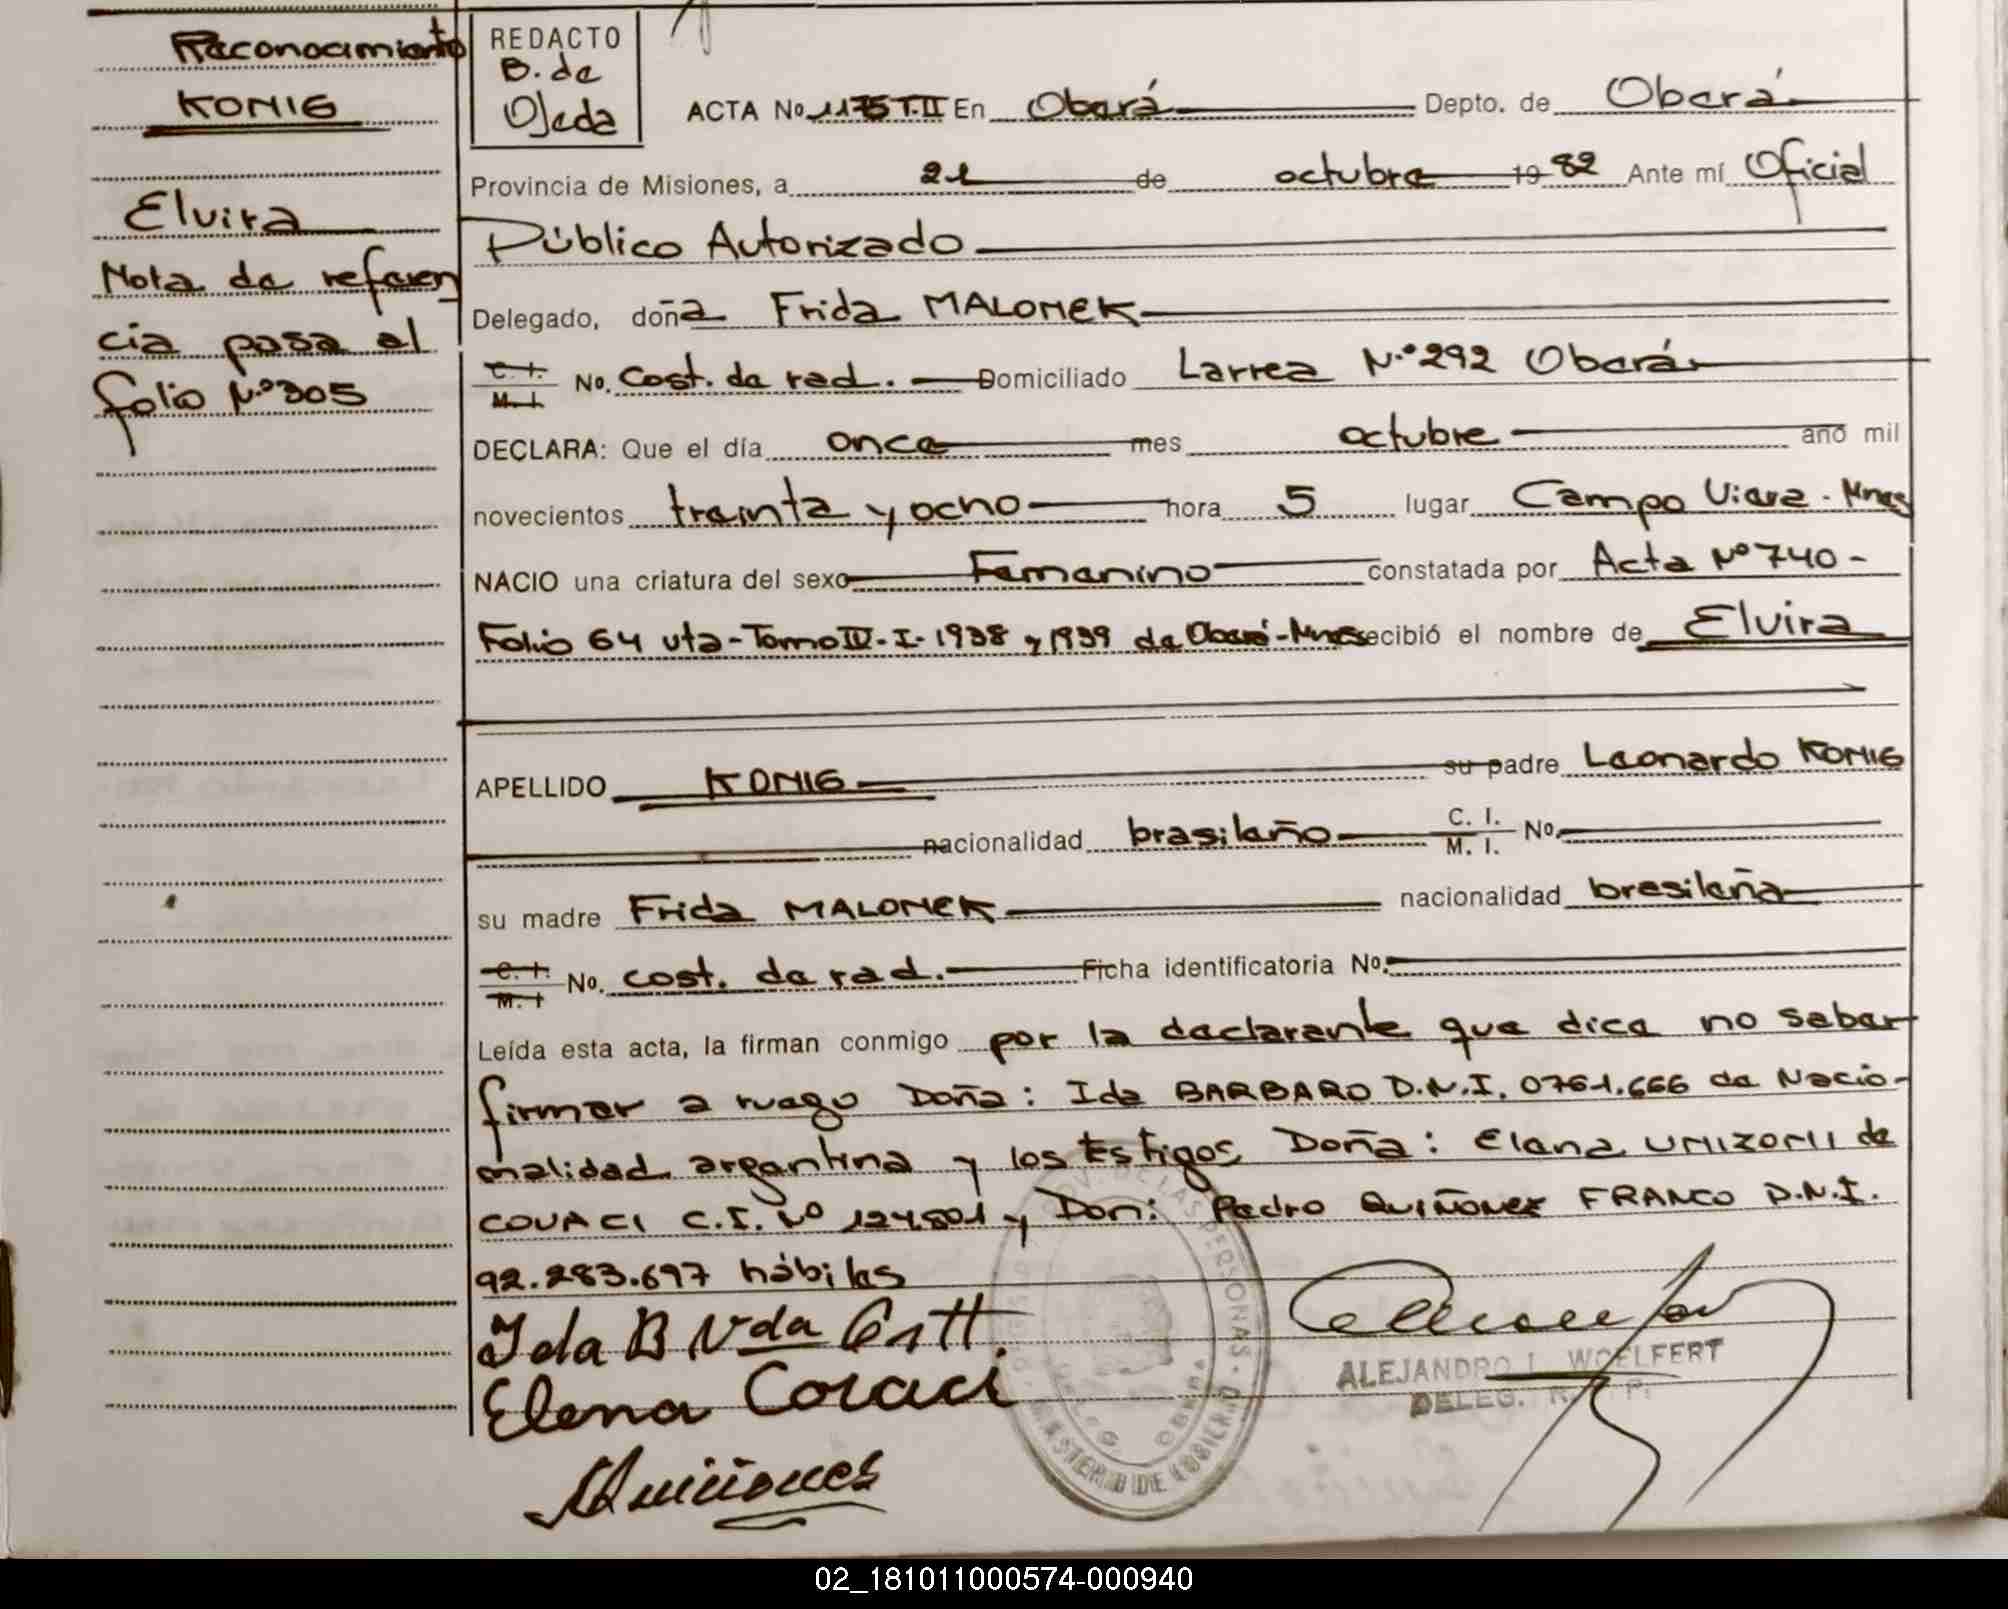 Reconocimiento
KONIG
Elvira
Nota de referen
cia pasa al
folio N.º 305
REDACTO
B. de
Ojeda
ACTA No 1175 T.II En Oberá Depto. de Oberá
Provincia de Misiones, a 21 de octubre 19 82 Ante mí Oficial
Público Autorizado
Delegado, doña Frida MALONEK
C. I. M. I. No. Cost. de rad. Domiciliado Larrea N.º 292 Oberá
DECLARA: Que el día once mes octubre año mil
novecientos treinta y ocho hora 5 lugar Campo Viera - Mnes
NACIO una criatura del sexo Femenino constatada por Acta Nº 740 -
Folio 64 vta - Tomo IV - I - 1938 y 1939 de Oberá - Mnes recibió el nombre de Elvira
APELLIDO KONIG su padre Leonardo KONIG
nacionalidad brasileño C. I. M. I. No.
su madre Frida MALONEK nacionalidad brasileña
C. I. M. I No. cost. de rad. Ficha identificatoria No.
Leída esta acta, la firman conmigo por la declarante que dice no saber
firmar a ruego Doña: Ida BARBARO D.N.I. 0761.666 de Nacio-
nalidad argentina y los testigos Doña: Elena UNIZONII de
COVACI C.I. Nº 124.501 y Don: Pedro QUIÑONEZ FRANCO D.N.I.
92.283.697 hábiles
Ida B Vda
Elena Covaci
ALEJANDRO I. WOELFERT
DELEG. R. P.
02_181011000574-000940